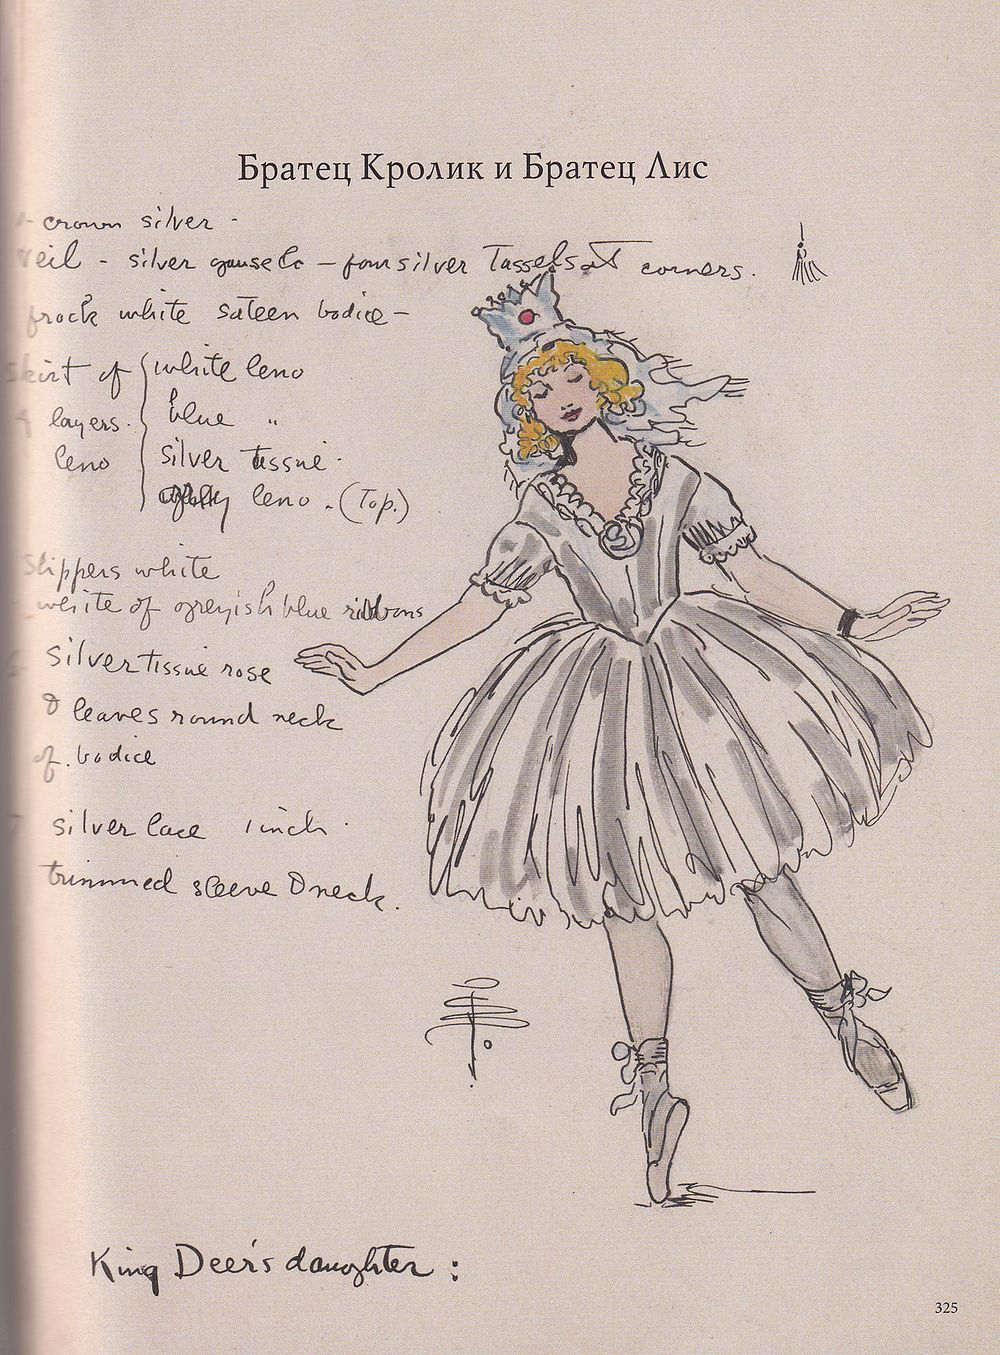 Братец Кролик и Братец Лис
crown silver -
veil - silver gauze &c - four silver Tassels at corners.
frock white sateen bodice -
skirt of { white leno
4 layers. blue "
leno silver tissue.
leno. (Top.)
slippers white
white of greyish blue ribbons
silver tissue rose
& leaves round neck
of bodice
silver lace 1 inch.
trimmed sleeve & neck.
King Deer's daughter :
325